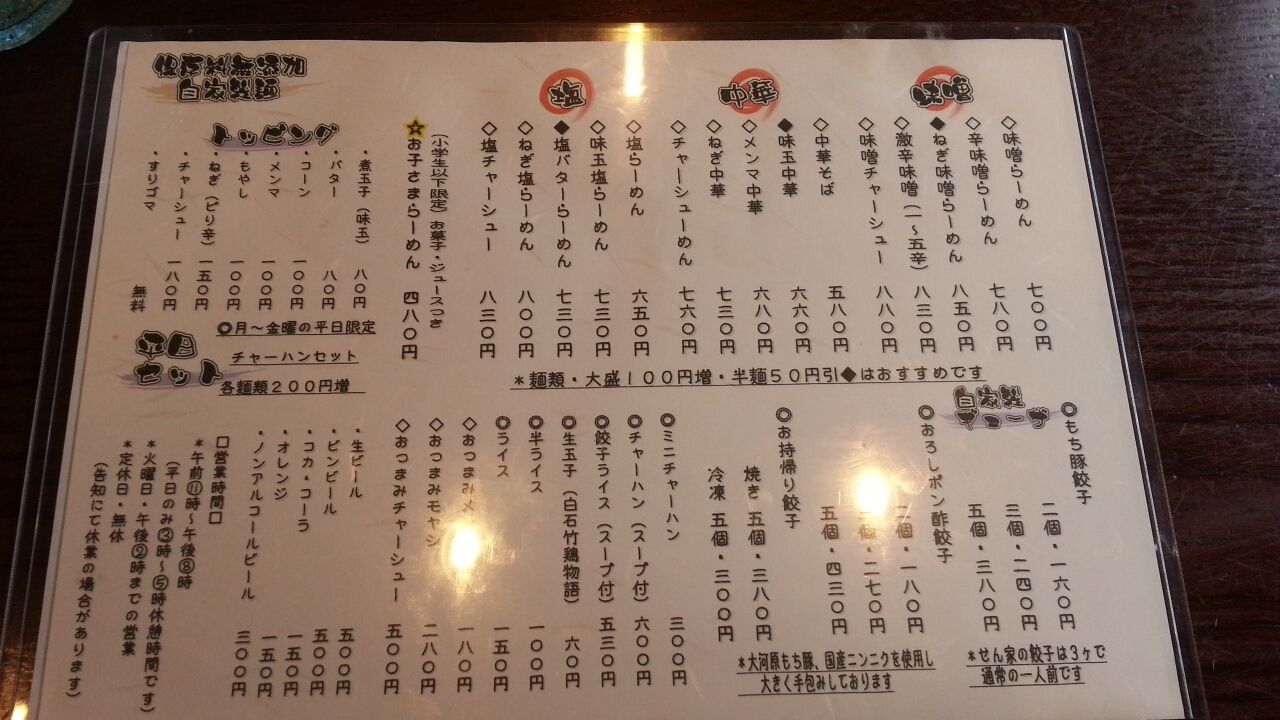 味噌
◇味噌らーめん 七〇〇円
◇辛味噌らーめん 七八〇円
◆ねぎ味噌らーめん 八五〇円
◇激辛味噌(一〜五辛) 八三〇円
◇味噌チャーシュー 八八〇円
中華
◇中華そば 五八〇円
◆味玉中華 六六〇円
◇メンマ中華 六八〇円
◇ねぎ中華 七三〇円
◇チャーシューめん 七六〇円
塩
◇塩らーめん 六五〇円
◇味玉塩らーめん 七三〇円
◆塩バターらーめん 七三〇円
◇ねぎ塩らーめん 八〇〇円
◇塩チャーシュー 八三〇円
(小学生以下限定)お菓子・ジュースつき
☆お子さまらーめん 四八〇円
保存料無添加
自家製麺
トッピング
・煮玉子(味玉) 八〇円
・バター 八〇円
・コーン 一〇〇円
・メンマ 一〇〇円
・もやし 一〇〇円
・ねぎ(ピリ辛) 一五〇円
・チャーシュー 一八〇円
・すりゴマ 無料
平日
セット
◎月〜金曜の平日限定
チャーハンセット
各麺類200円増
*麺類・大盛100円増・半麺50円引◆はおすすめです
自家製
ギョーザ
◎もち豚餃子
二個・一六〇円
三個・二四〇円
五個・三八〇円
*せん家の餃子は3ヶで
通常の一人前です
◎おろしポン酢餃子
二個・一八〇円
三個・二七〇円
五個・四三〇円
◎お持帰り餃子
焼き 五個・三八〇円
冷凍 五個・三〇〇円
*大河原もち豚、国産ニンニクを使用し
大きく手包みしております
◎ミニチャーハン 三〇〇円
◎チャーハン(スープ付) 六〇〇円
◎餃子ライス(スープ付) 五三〇円
◎生玉子(白石竹鶏物語) 六〇円
◎半ライス 一〇〇円
◎ライス 一五〇円
◇おつまみメ 一八〇円
◇おつまみモヤシ 二八〇円
◇おつまみチャーシュー 五〇〇円
・生ビール 五〇〇円
・ビンビール 五〇〇円
・コカ・コーラ 一五〇円
・オレンジ 一五〇円
・ノンアルコールビール 三〇〇円
□営業時間□
*午前⑪時〜午後⑧時
(平日のみ③時〜⑤時休憩時間です)
*火曜日・午後②時までの営業
*定休日・無休
(告知にて休業の場合があります)